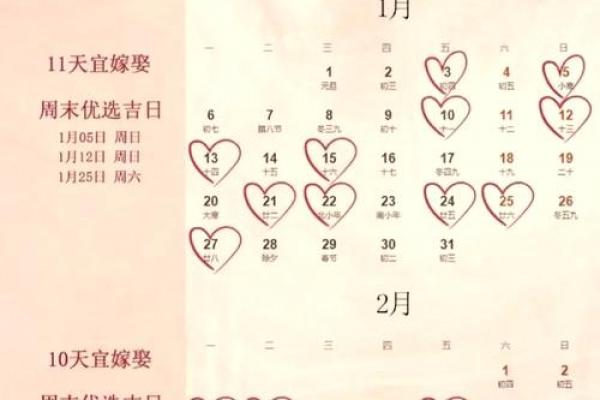 1月
11天宜嫁娶
周末优选吉日
1月05日 周日
1月12日 周日
1月25日 周六
一 二 三 四 五 六 日
1 2 3 4 5
元旦 初三 初四 初五 小寒
6 7 8 9 10 11 12
初七 腊八节 冬三九 初十 十一 十二 十三
13 14 15 16 17 18 19
十四 十五 十六 十七 冬四九 十九 二十
20 21 22 23 24 25 26
大寒 廿二 北小年 南小年 廿五 廿六 冬五九
27 28 29 30 31
廿八 除夕 春节 初二 初三
2月
10天宜嫁娶
一 二 三 四 五 六 日
1 2
初四 初五
周末优选吉日